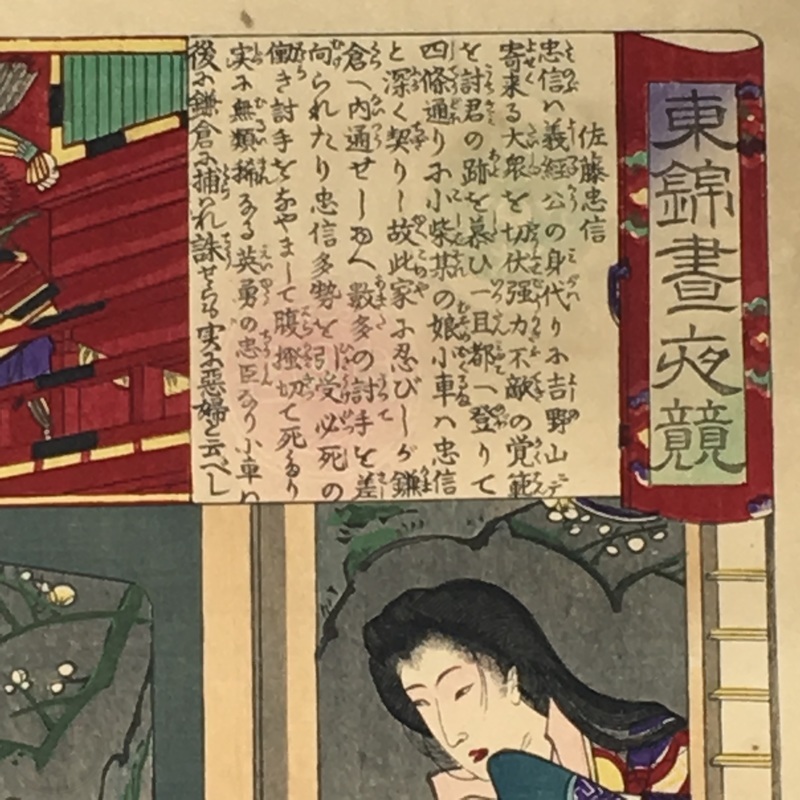 東錦晝夜競
佐藤忠信
忠信ハ義経公の身代りニ吉野山ニテ
寄来る大衆を切伏强力不敵の覚範
を討君の跡を慕ひ一旦都へ登りて
四條通りニ小柴某の娘小車ハ忠信
と深く契りし故此家ニ忍びしが鎌
倉へ内通せしゆへ数多の討手を差
向られたり忠信多勢を引受必死の
働き討手をなやまして腹掻切て死るり
実ニ無類稀なる英勇の忠臣なり小車ハ
後ニ鎌倉ニ捕ハれ誅せらる実ニ惡婦と云べし